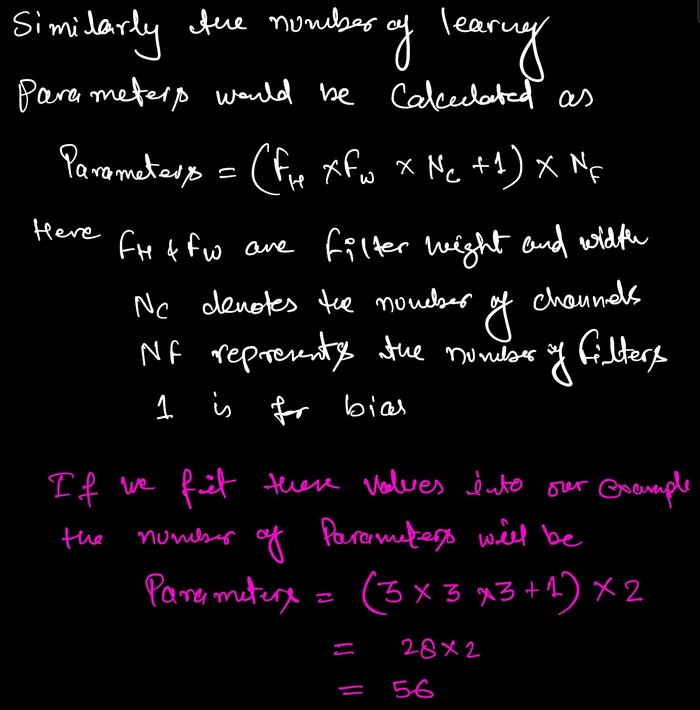 Similarly the number of learnig
Parameters would be Calculated as
Parameters = (F_H × F_W × N_C + 1) × N_F
Here F_H & F_W are Filter height and width
N_C denotes the number of channels
NF represents the number of Filters
1 is for bias
If we fit these values into our example
the number of Parameters will be
Parameters = (3 × 3 × 3 + 1) × 2
= 28 × 2
= 56